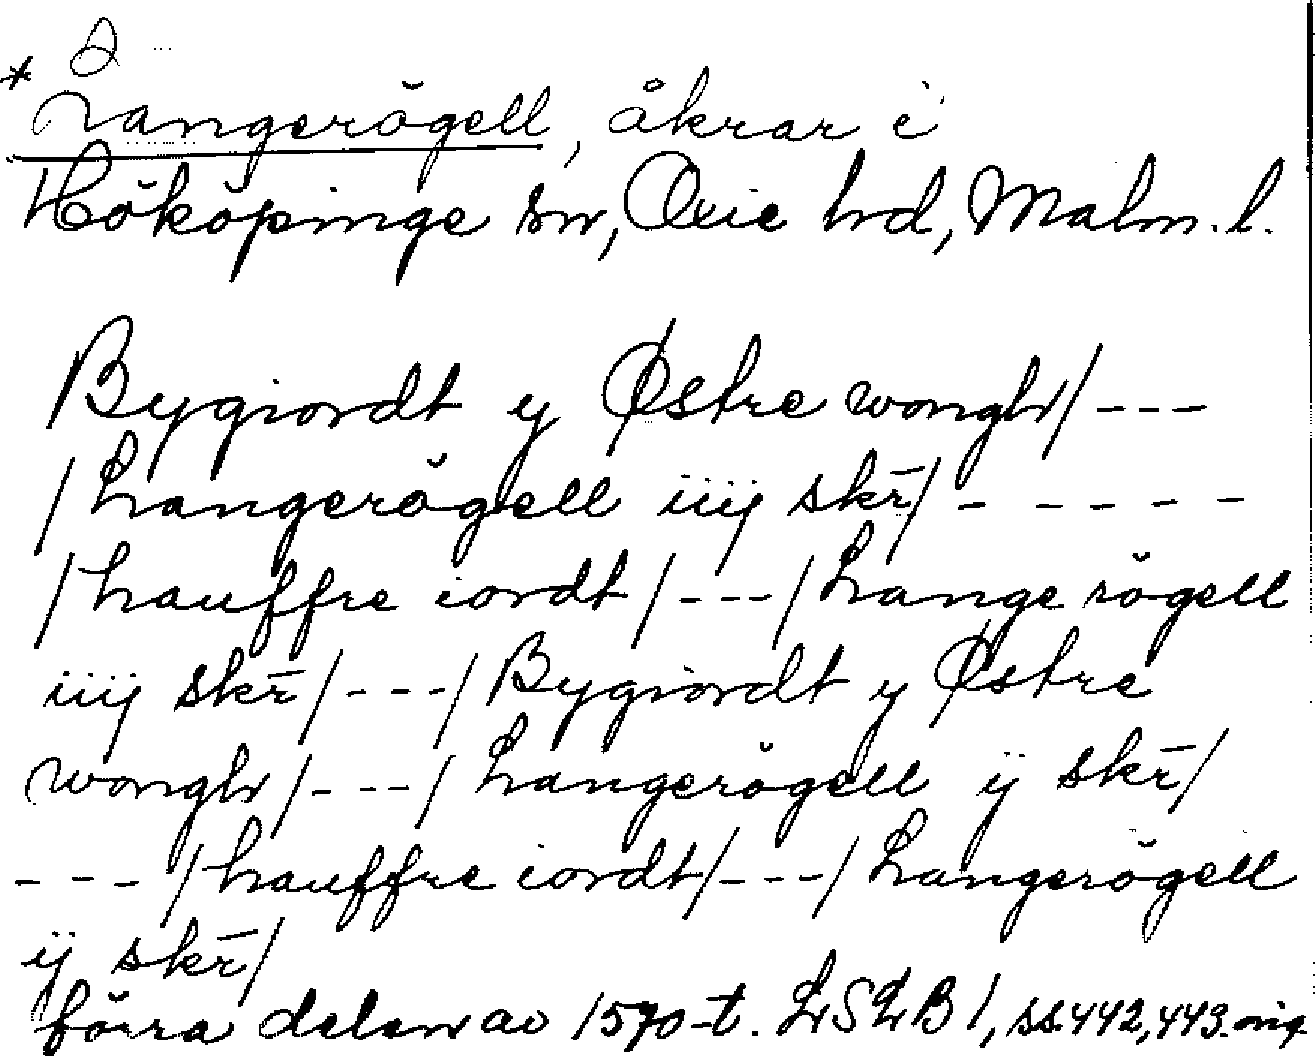 2
* Langerögell, åkrar i
Hököpinge sn, Oxie hd, Malm. l.
Bygiordt y Østre wongh/ ---
/Langerögell iiij skr̄/ - - - - -
/hauffre iordt/ --- /Lange rögell
iiij skr̄/ --- / Bygiordt y Østre
wongh/ --- / Langerögell ij skr̄/
--- /hauffre iordt/ --- / Langerögell
ij skr̄/
förra delen av 1570-t. LSLB 1, ss. 442, 443. orig.